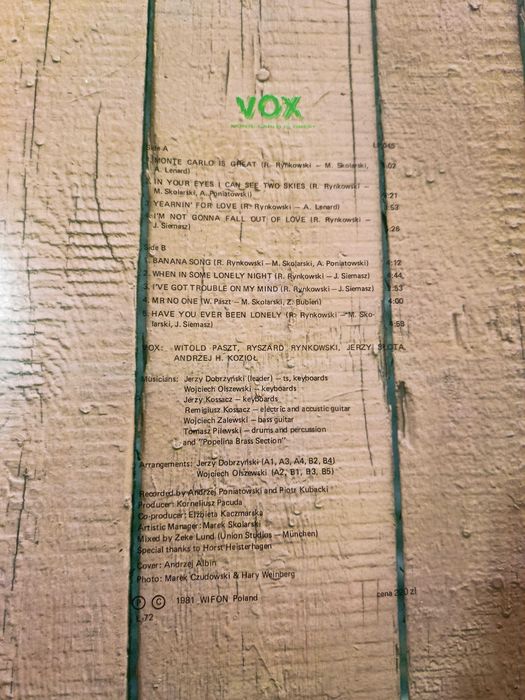 VOX
Side A LP 045
MONTE CARLO IS GREAT (R. Rynkowski – M. Skolarski, :02
A. Lenard)
IN YOUR EYES I CAN SEE TWO SKIES (R. Rynkowski –
M. Skolarski, A. Poniatowski) :21
YEARNIN' FOR LOVE (R. Rynkowski – A. Lenard) :53
I'M NOT GONNA FALL OUT OF LOVE (R. Rynkowski –
J. Siemasz) :26
Side B
BANANA SONG (R. Rynkowski – M. Skolarski, A. Poniatowski) 4:12
2. WHEN IN SOME LONELY NIGHT (R. Rynkowski – J. Siemasz) 4:44
3. I'VE GOT TROUBLE ON MY MIND (R. Rynkowski – J. Siemasz) :53
4. MR NO ONE (W. Paszt – M. Skolarski, Z. Bubień) 4:00
5. HAVE YOU EVER BEEN LONELY (R. Rynkowski – M. Sko-
larski, J. Siemasz) 4:58
VOX: WITOLD PASZT, RYSZARD RYNKOWSKI, JERZY SŁOTA,
ANDRZEJ H. KOZIOŁ
Musicians: Jerzy Dobrzyński (leader) – ts, keyboards
Wojciech Olszewski – keyboards
Jerzy Kossacz – keyboards
Remigiusz Kossacz – electric and accustic guitar
Wojciech Zalewski – bass guitar
Tomasz Pilewski – drums and percussion
and "Popelina Brass Section"
Arrangements: Jerzy Dobrzyński (A1, A3, A4, B2, B4)
Wojciech Olszewski (A2, B1, B3, B5)
Recorded by Andrzej Poniatowski and Piotr Kubacki
Producer: Korneliusz Pacuda
Co-producer: Elżbieta Kaczmarska
Artistic Manager: Marek Skolarski
Mixed by Zeke Lund (Union Studios – München)
Special thanks to Horst Heisterhagen
Cover: Andrzej Albin
Photo: Marek Czudowski & Hary Weinberg
Ⓟ Ⓒ 1981 WIFON Poland cena zł
L-72